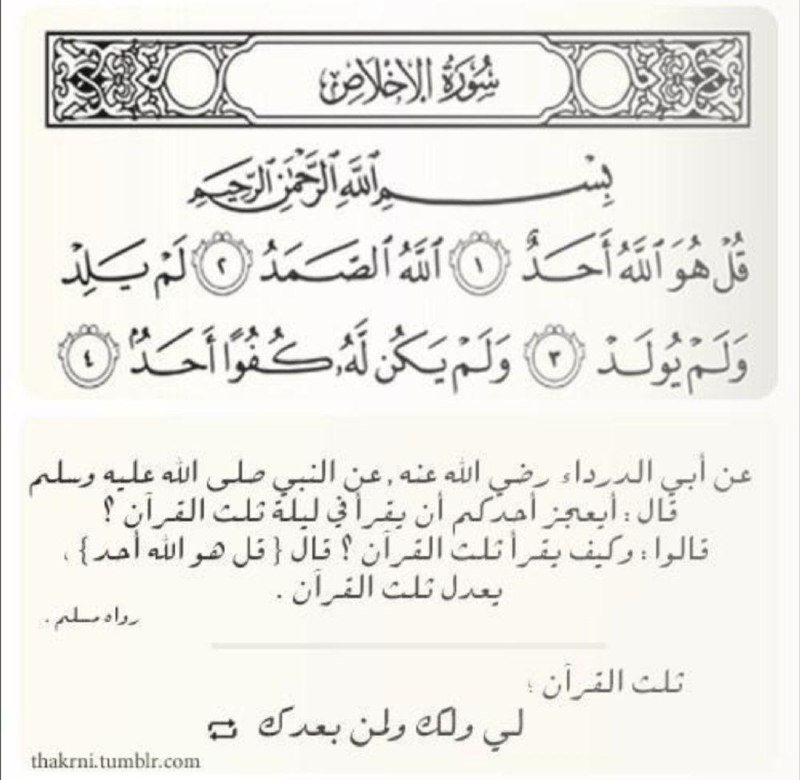 سُورَةُ الإِخْلَاصِ
بِسْمِ ٱللَّهِ ٱلرَّحْمَٰنِ ٱلرَّحِيمِ
قُلْ هُوَ ٱللَّهُ أَحَدٌ ١ ٱللَّهُ ٱلصَّمَدُ ٢ لَمْ يَلِدْ
وَلَمْ يُولَدْ ٣ وَلَمْ يَكُن لَّهُۥ كُفُوًا أَحَدٌۢ ٤
عن أبي الدرداء رضي الله عنه , عن النبي صلى الله عليه وسلم
قال : أيعجز أحدكم أن يقرأ في ليلة ثلث القرآن ؟
قالوا : وكيف يقرأ ثلث القرآن ؟ قال { قل هو الله أحد } ،
يعدل ثلث القرآن .
رواه مسلم .
ثلث القرآن ؛
لي ولك ولمن بعدك
thakrni.tumblr.com